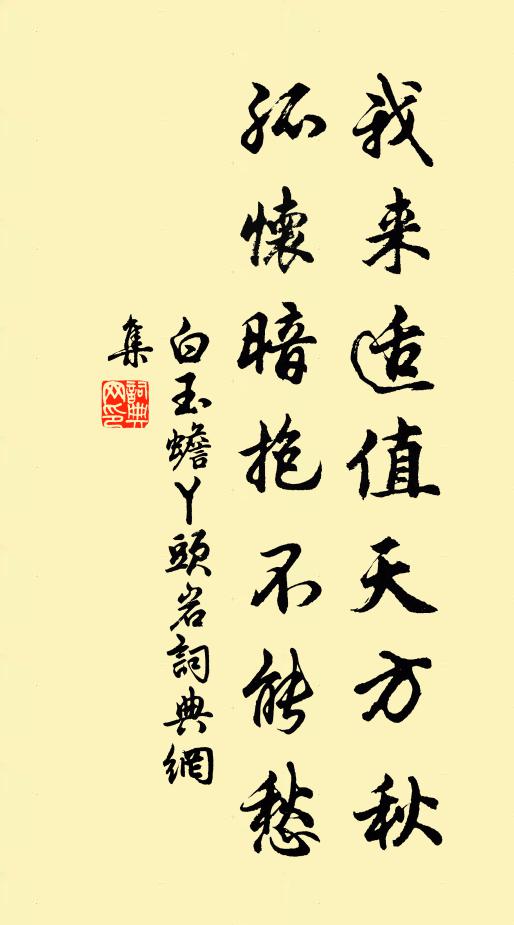 我来适值天方秋
孤懷暗抱不能愁
白玉蟾丫頭岩詞典網
集
詞典網印